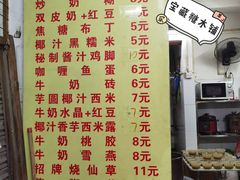 炒奶糊 6元
双皮奶+红豆 7元
焦糖布丁 5元
椰汁黑糯米 5元
秘制酱汁鸡脚
咖喱鱼蛋 6元
牛奶砖 6元
芋圆椰汁西米 7元
牛奶水晶+红豆 7元
椰汁香芋西米露 7元
牛奶桃胶 8元
牛奶雪燕 8元
招牌烧仙草 11元
宝藏糖水铺